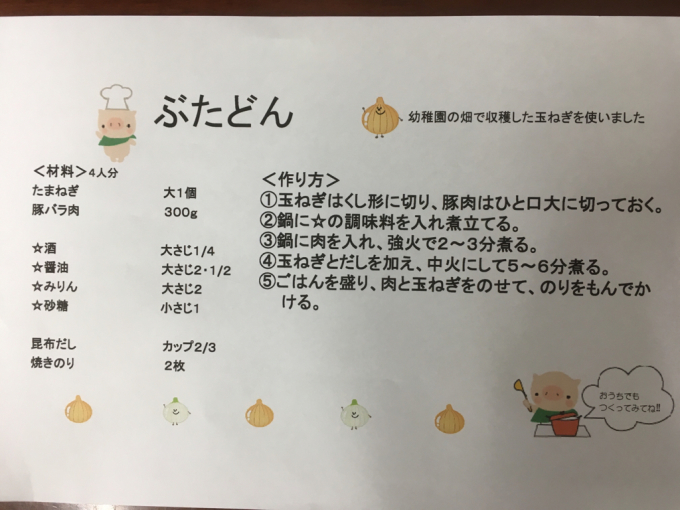 ぶたどん
幼稚園の畑で収穫した玉ねぎを使いました
＜材料＞4人分
たまねぎ 大1個
豚バラ肉 300g
☆酒 大さじ1/4
☆醤油 大さじ2・1/2
☆みりん 大さじ2
☆砂糖 小さじ1
昆布だし カップ2/3
焼きのり 2枚
＜作り方＞
①玉ねぎはくし形に切り、豚肉はひと口大に切っておく。
②鍋に☆の調味料を入れ煮立てる。
③鍋に肉を入れ、強火で2～3分煮る。
④玉ねぎとだしを加え、中火にして5～6分煮る。
⑤ごはんを盛り、肉と玉ねぎをのせて、のりをもんでか
ける。
おうちでも
つくってみてね!!